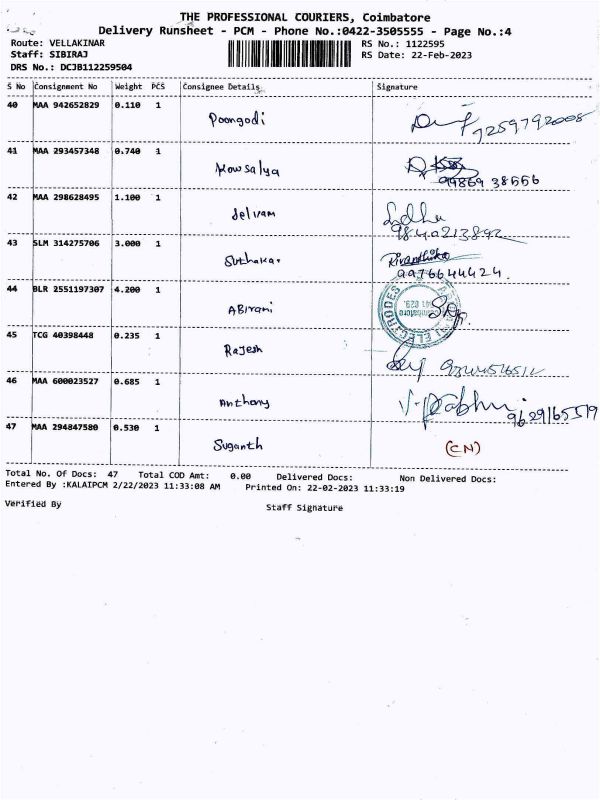 THE PROFESSIONAL COURIERS, Coimbatore
Delivery Runsheet - PCM - Phone No.:0422-3505555 - Page No.:4
Route: VELLAKINAR
Staff: SIBIRAJ
DRS No.: DCJB112259504
RS No.: 1122595
RS Date: 22-Feb-2023
S No Consignment No Weight PCS Consignee Details Signature
40 MAA 942652829 0.110 1 Poongodi 7259792008
41 MAA 293457348 0.740 1 Kowsalya 99869 38556
42 MAA 298628495 1.100 1 Selvam 9840213892
43 SLM 314275706 3.000 1 Suthakar 9976644424.
44 BLR 2551197307 4.200 1 ABIrani
45 TCG 40398448 0.235 1 Rajesh
46 MAA 600023527 0.685 1 Anthony V. Prabhu 9629165519
47 MAA 294847580 0.530 1 Suganth (CN)
Total No. Of Docs: 47 Total COD Amt: 0.00 Delivered Docs: Non Delivered Docs:
Entered By :KALAIPCM 2/22/2023 11:33:08 AM Printed On: 22-02-2023 11:33:19
Verified By Staff Signature